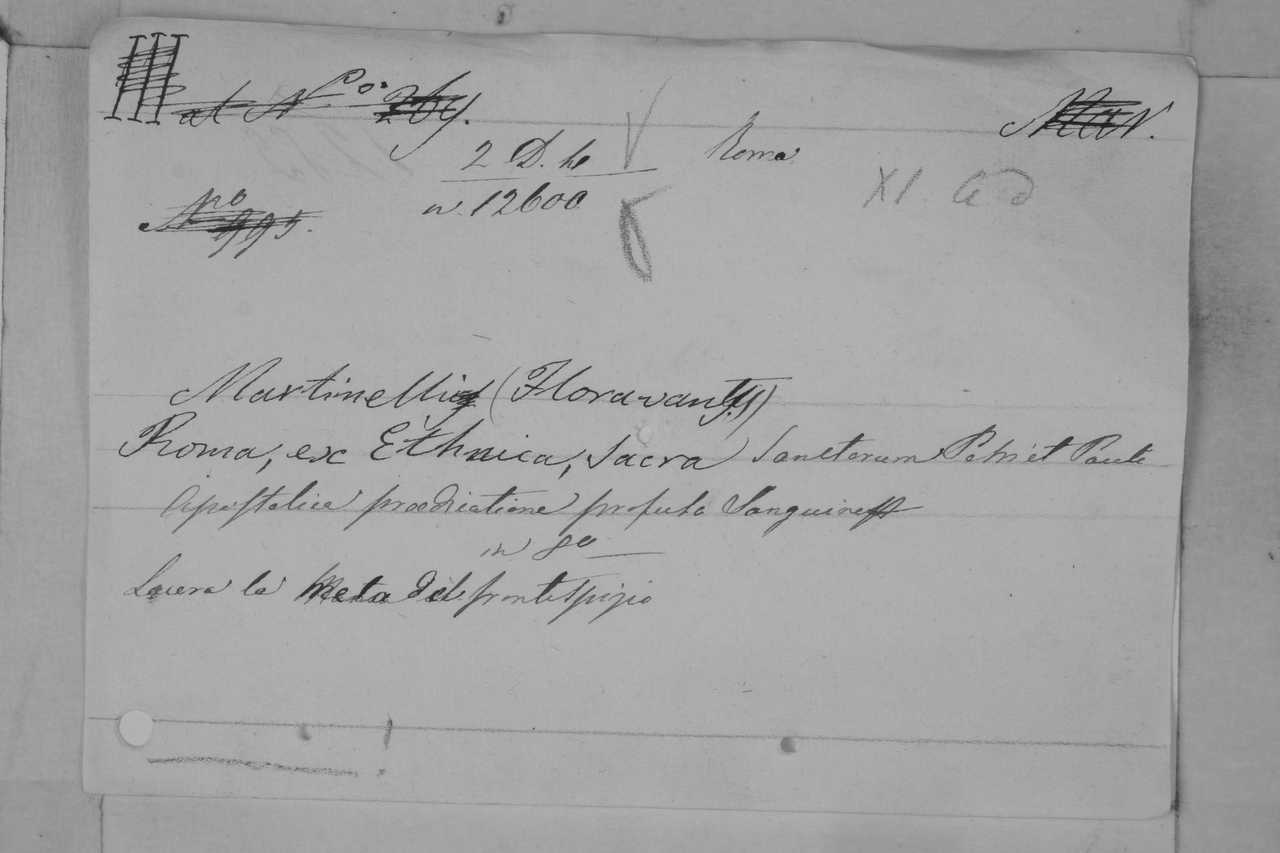 III al N.ro 269.
Mar.
2 D. he
Roma
n. 12600
XI. a d
N.ro 995.
Martinelli (Floravant)
Roma, ex Ethnica, Sacra Sanctorum Petri et Pauli
Apostolica praedicatione profuso Sanguine
in 8o
Lacera la Meta del frontespizio